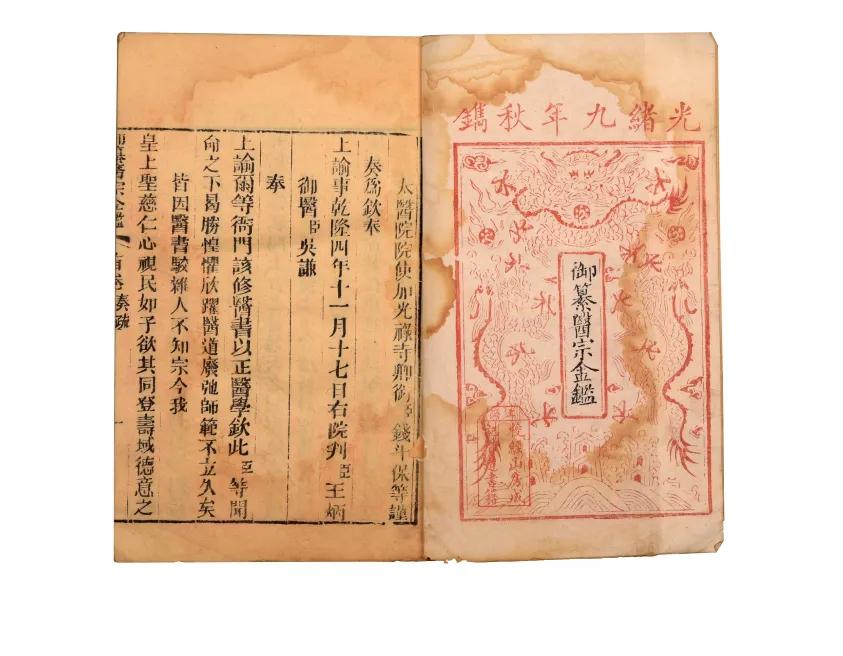 光緒九年秋鐫
御纂醫宗金鑑
太醫院院使加光祿寺卿銜臣錢斗保等謹
奏爲欽奉
上諭事乾隆四年十一月十七日右院判臣王炳
御醫臣吳謙
奉
上諭爾等衙門該修醫書以正醫學欽此臣等聞
命之下曷勝惶懼欣躍醫道廢弛師範不立久矣
皆因醫書駁雜人不知宗今我
皇上聖慈仁心視民如子欲其同登壽域德意之
御纂醫宗金鑑 首卷奏疏 一